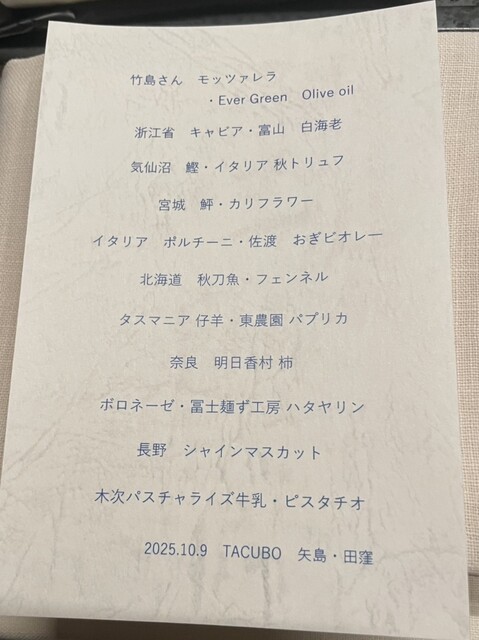 竹島さん　モッツァレラ
・Ever Green　Olive oil
浙江省　キャビア・富山　白海老
気仙沼　鰹・イタリア 秋トリュフ
宮城　鮃・カリフラワー
イタリア　ポルチーニ・佐渡　おぎビオレー
北海道　秋刀魚・フェンネル
タスマニア 仔羊・東農園 パプリカ
奈良　明日香村 柿
ボロネーゼ・冨士麺ず工房 ハタヤリン
長野　シャインマスカット
木次パスチャライズ牛乳・ピスタチオ
2025.10.9　TACUBO　矢島・田窪